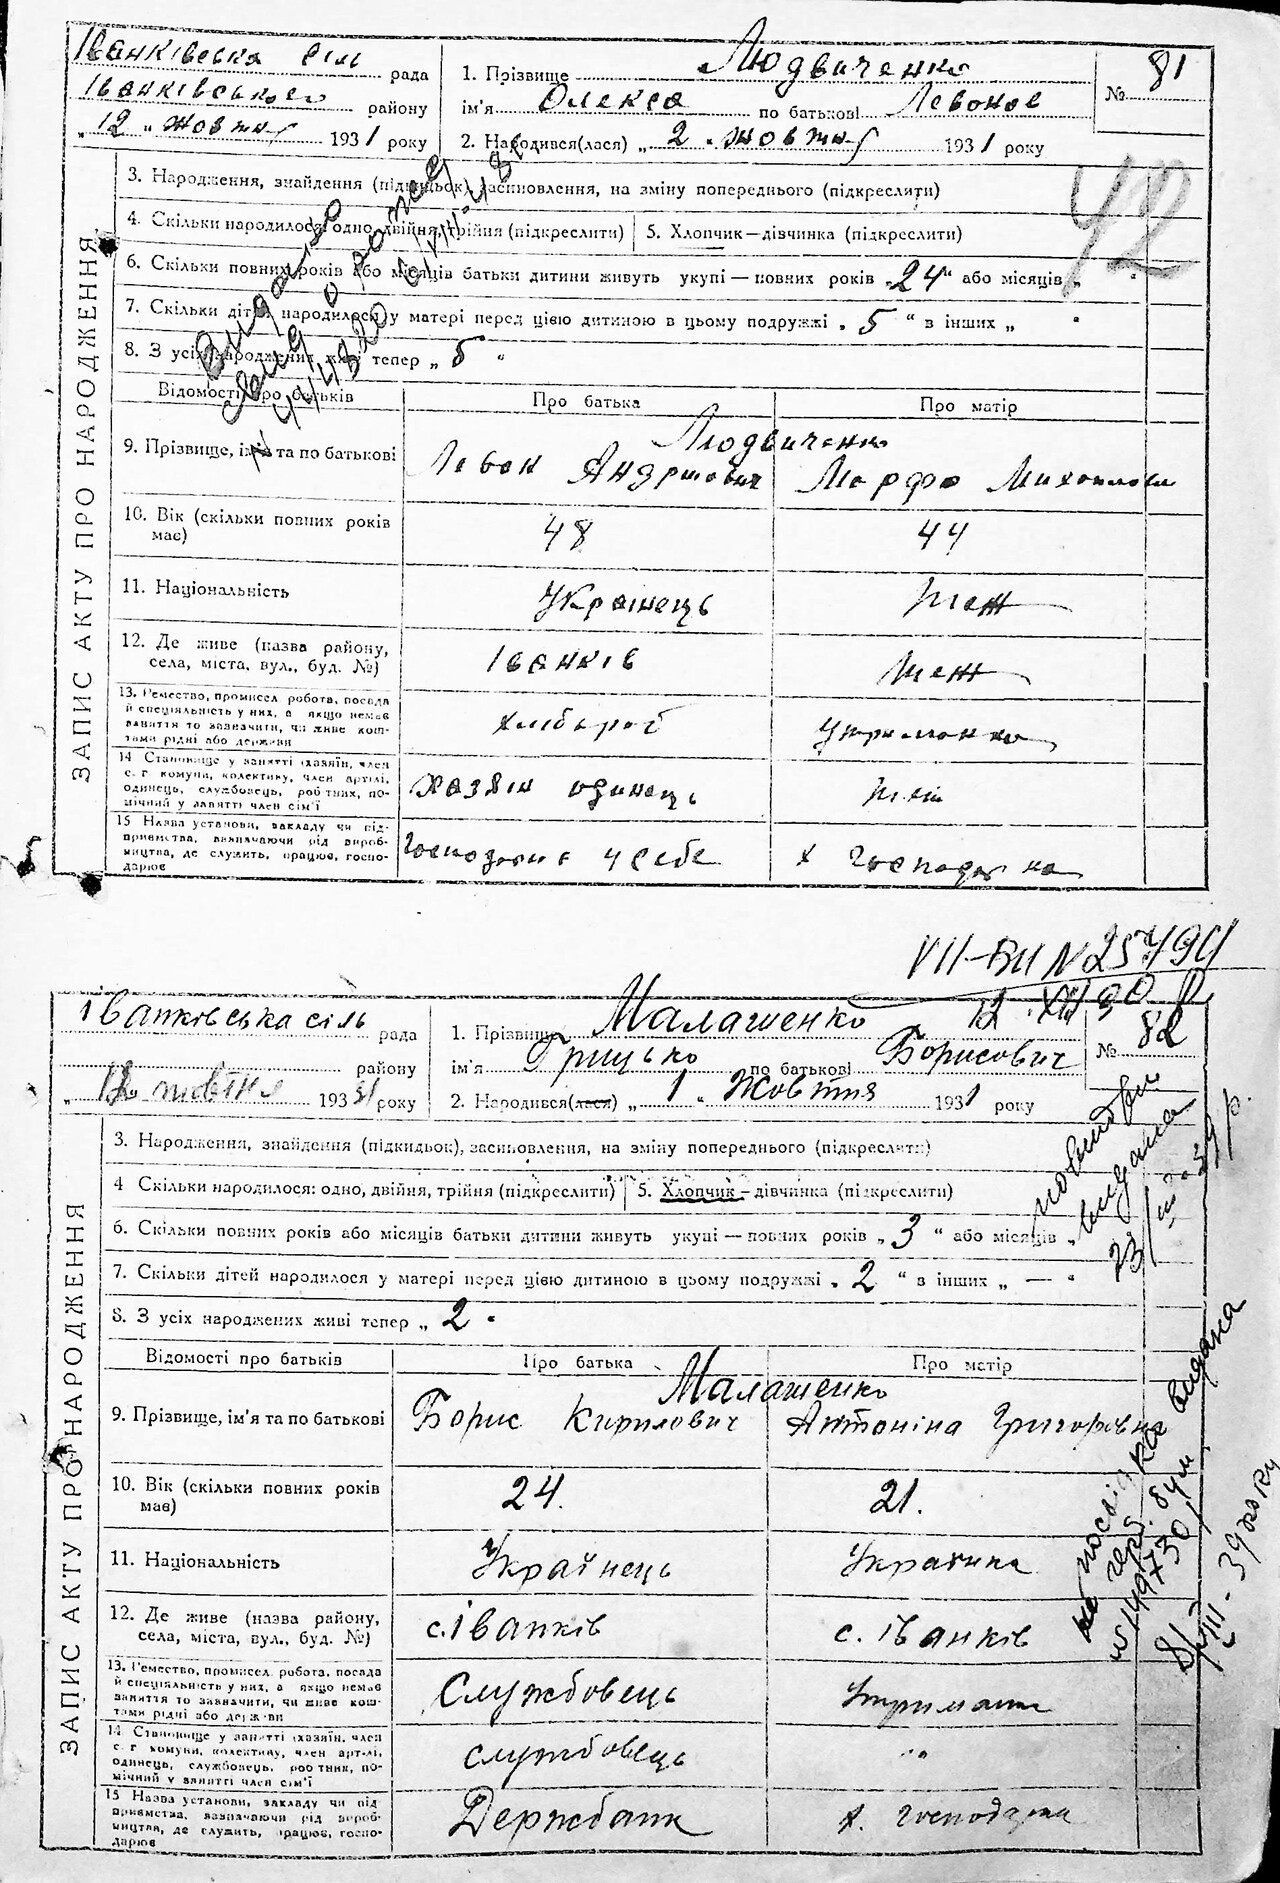 Іванківська сіль рада
Іванківського району
„ 12 „ жовтня 1931 року
1. Прізвище Людвиченко
ім'я Олекса по батькові Левонов
2. Народився(лася) „ 2 „ жовтня 1931 року
№ 81
42
ЗАПИС АКТУ ПРО НАРОДЖЕННЯ
3. Народження, знайдення (підкидьок), засиновлення, на зміну попереднього (підкреслити)
4. Скільки народилося: одно, двійня, трійня (підкреслити) 5. Хлопчик—дівчинка (підкреслити)
6. Скільки повних років або місяців батьки дитини живуть укупі—повних років „24“ або місяців „ “
7. Скільки дітей народилося у матері перед цією дитиною в цьому подружжі „ 5 “ в інших „ “
8. З усіх народжених живі тепер „ 5 “
Відомості про батьків Про батька Про матір
Людвиченко
9. Прізвище, ім'я та по батькові Левон Андріевич Марфа
10. Вік (скільки повних років має) 48 44
11. Національність Українець теж
12. Де живе (назва району, села, міста, вул., буд. №) Іванків теж
13. Ремество, промисел робота, посада й спеціяльність у них, а якщо немає заняття то зазначити, чи живе коштами рідні або держави хлібороб
14 Становище у занятті (хазяїн, член с. г комуни, колективу, член артілі, одинець, службовець, робітник, помічний у занятті член сім'ї хазяїн одинець теж
15 Назва установи, закладу чи підприємства, зазначаючи рід виробництва, де служить, працює, господарює у себе х господарка
VII-БИ N 257794
12.XII 30 р.
Іванківська сіль рада
району
„ 12 жовтня 1931 року
1. Прізвище Малашенко
ім'я Грицько по батькові Борисович
2. Народився(лася) „ 1 „ Жовтня 1931 року
№ 82
ЗАПИС АКТУ ПРО НАРОДЖЕННЯ
3. Народження, знайдення (підкидьок), засиновлення, на зміну попереднього (підкреслити)
4 Скільки народилося: одно, двійня, трійня (підкреслити) 5. Хлопчик—дівчинка (підкреслити)
6. Скільки повних років або місяців батьки дитини живуть укупі—повних років „ 3 “ або місяців „
7. Скільки дітей народилося у матері перед цією дитиною в цьому подружжі „ 2 “ в інших „ — “
8. З усіх народжених живі тепер „ 2 “
Відомості про батьків Про батька Про матір
Малашенко
9. Прізвище, ім'я та по батькові Борис Кирилович Антоніна Григорівна
10. Вік (скільки повних років має) 24. 21.
11. Національність Українець Українка
12. Де живе (назва району, села, міста, вул., буд. №) с. Іванків с. Іванків
13. Ремество, промисел робота, посада й спеціяльність у них, а якщо немає заняття то зазначити, чи живе коштами рідні або держави Службовець
14 Становище у занятті (хазяїн, член с. г комуни, колективу, член артілі, одинець, службовець, робітник, помічний у занятті член сім'ї службовець „
15 Назва установи, закладу чи підприємства, зазначаючи рід виробництва, де служить, працює, господарює Держбанк х. господарка
видана
видана
N 149730
39 року